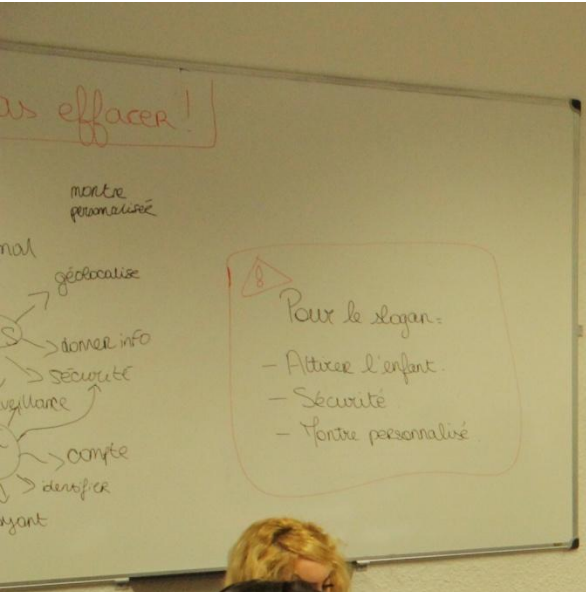 as effacer !
montre
personnalisée
géolocalise
donner info
sécurité
compte
identifier
Pour le slogan :
- Attirer l'enfant.
- Sécurité
- Montre personnalisé